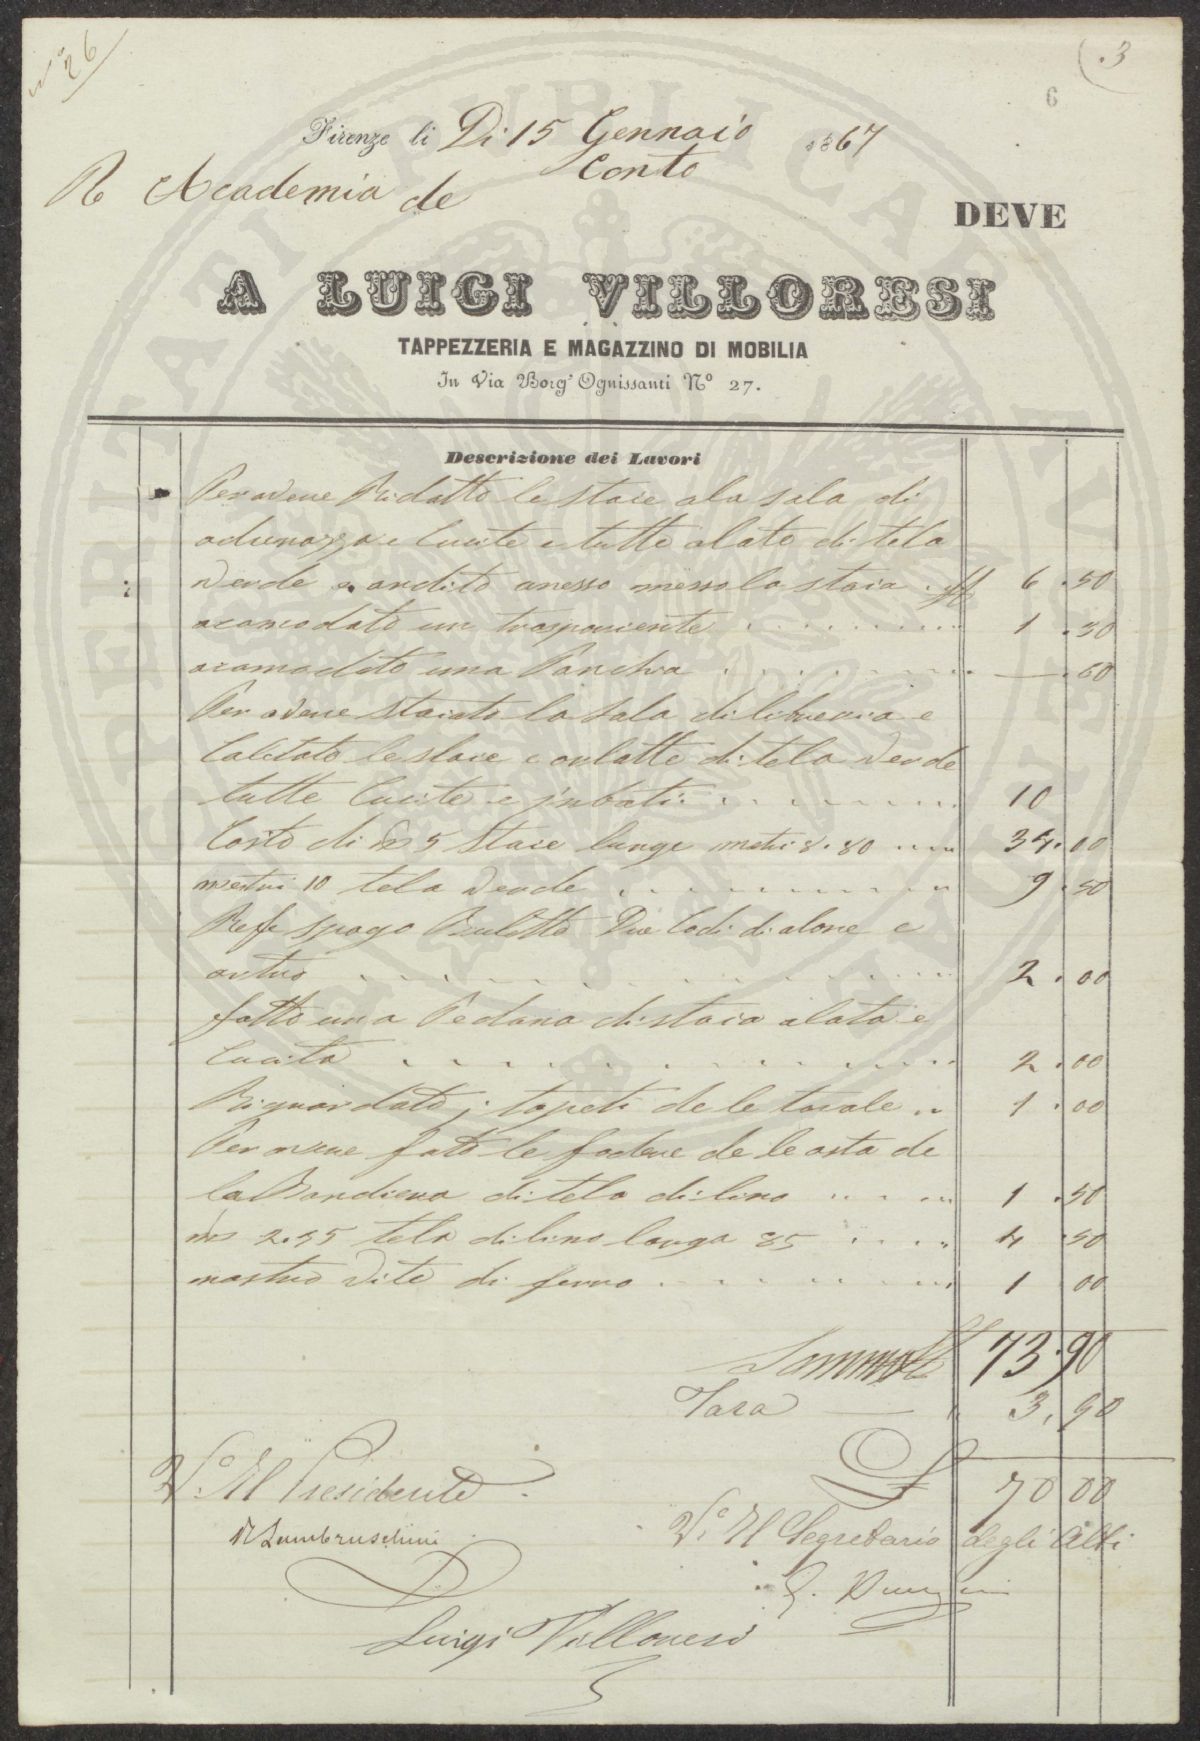 N° 26
3
6
Firenze li Di 15 Gennaio 1867
Conto
R Academia de
DEVE
A LUIGI VILLORESI
TAPPEZZERIA E MAGAZZINO DI MOBILIA
In Via Borg' Ognissanti N° 27.
Descrizione dei Lavori
Per avere Ridotto le staie ala sala di
adunazza e Cucite e tutto alato di tela
verde e andito anesso messo la staia 6.50
acamodato un trasparente 1.30
acamodato una Pancha .60
Per avere Staiato la sala di libreria e
tutte Cucite e 10
Costo di 5 Staie lunge metri 8.80 34.00
metri 10 tela verde 9.50
Refe spago Bulette Due e
2.00
fatto una Pedana di staia alata e
Cucita 2.00
Riguardato i tapeti de le tavole 1.00
Per avere fato le fodere de le asta de
la Bandiera di tela di lino 1.50
tela di lino larga 85 4.50
mastio Vite di ferro 1 00
Somma 73.90
Tara 3,90
70 00
V° Il Presidente
R Lambruschini
V° Il Segretario degli Atti
Luigi Villoresi
SPERITATI PUBLICAE AUGENDAE PROSPERITATI